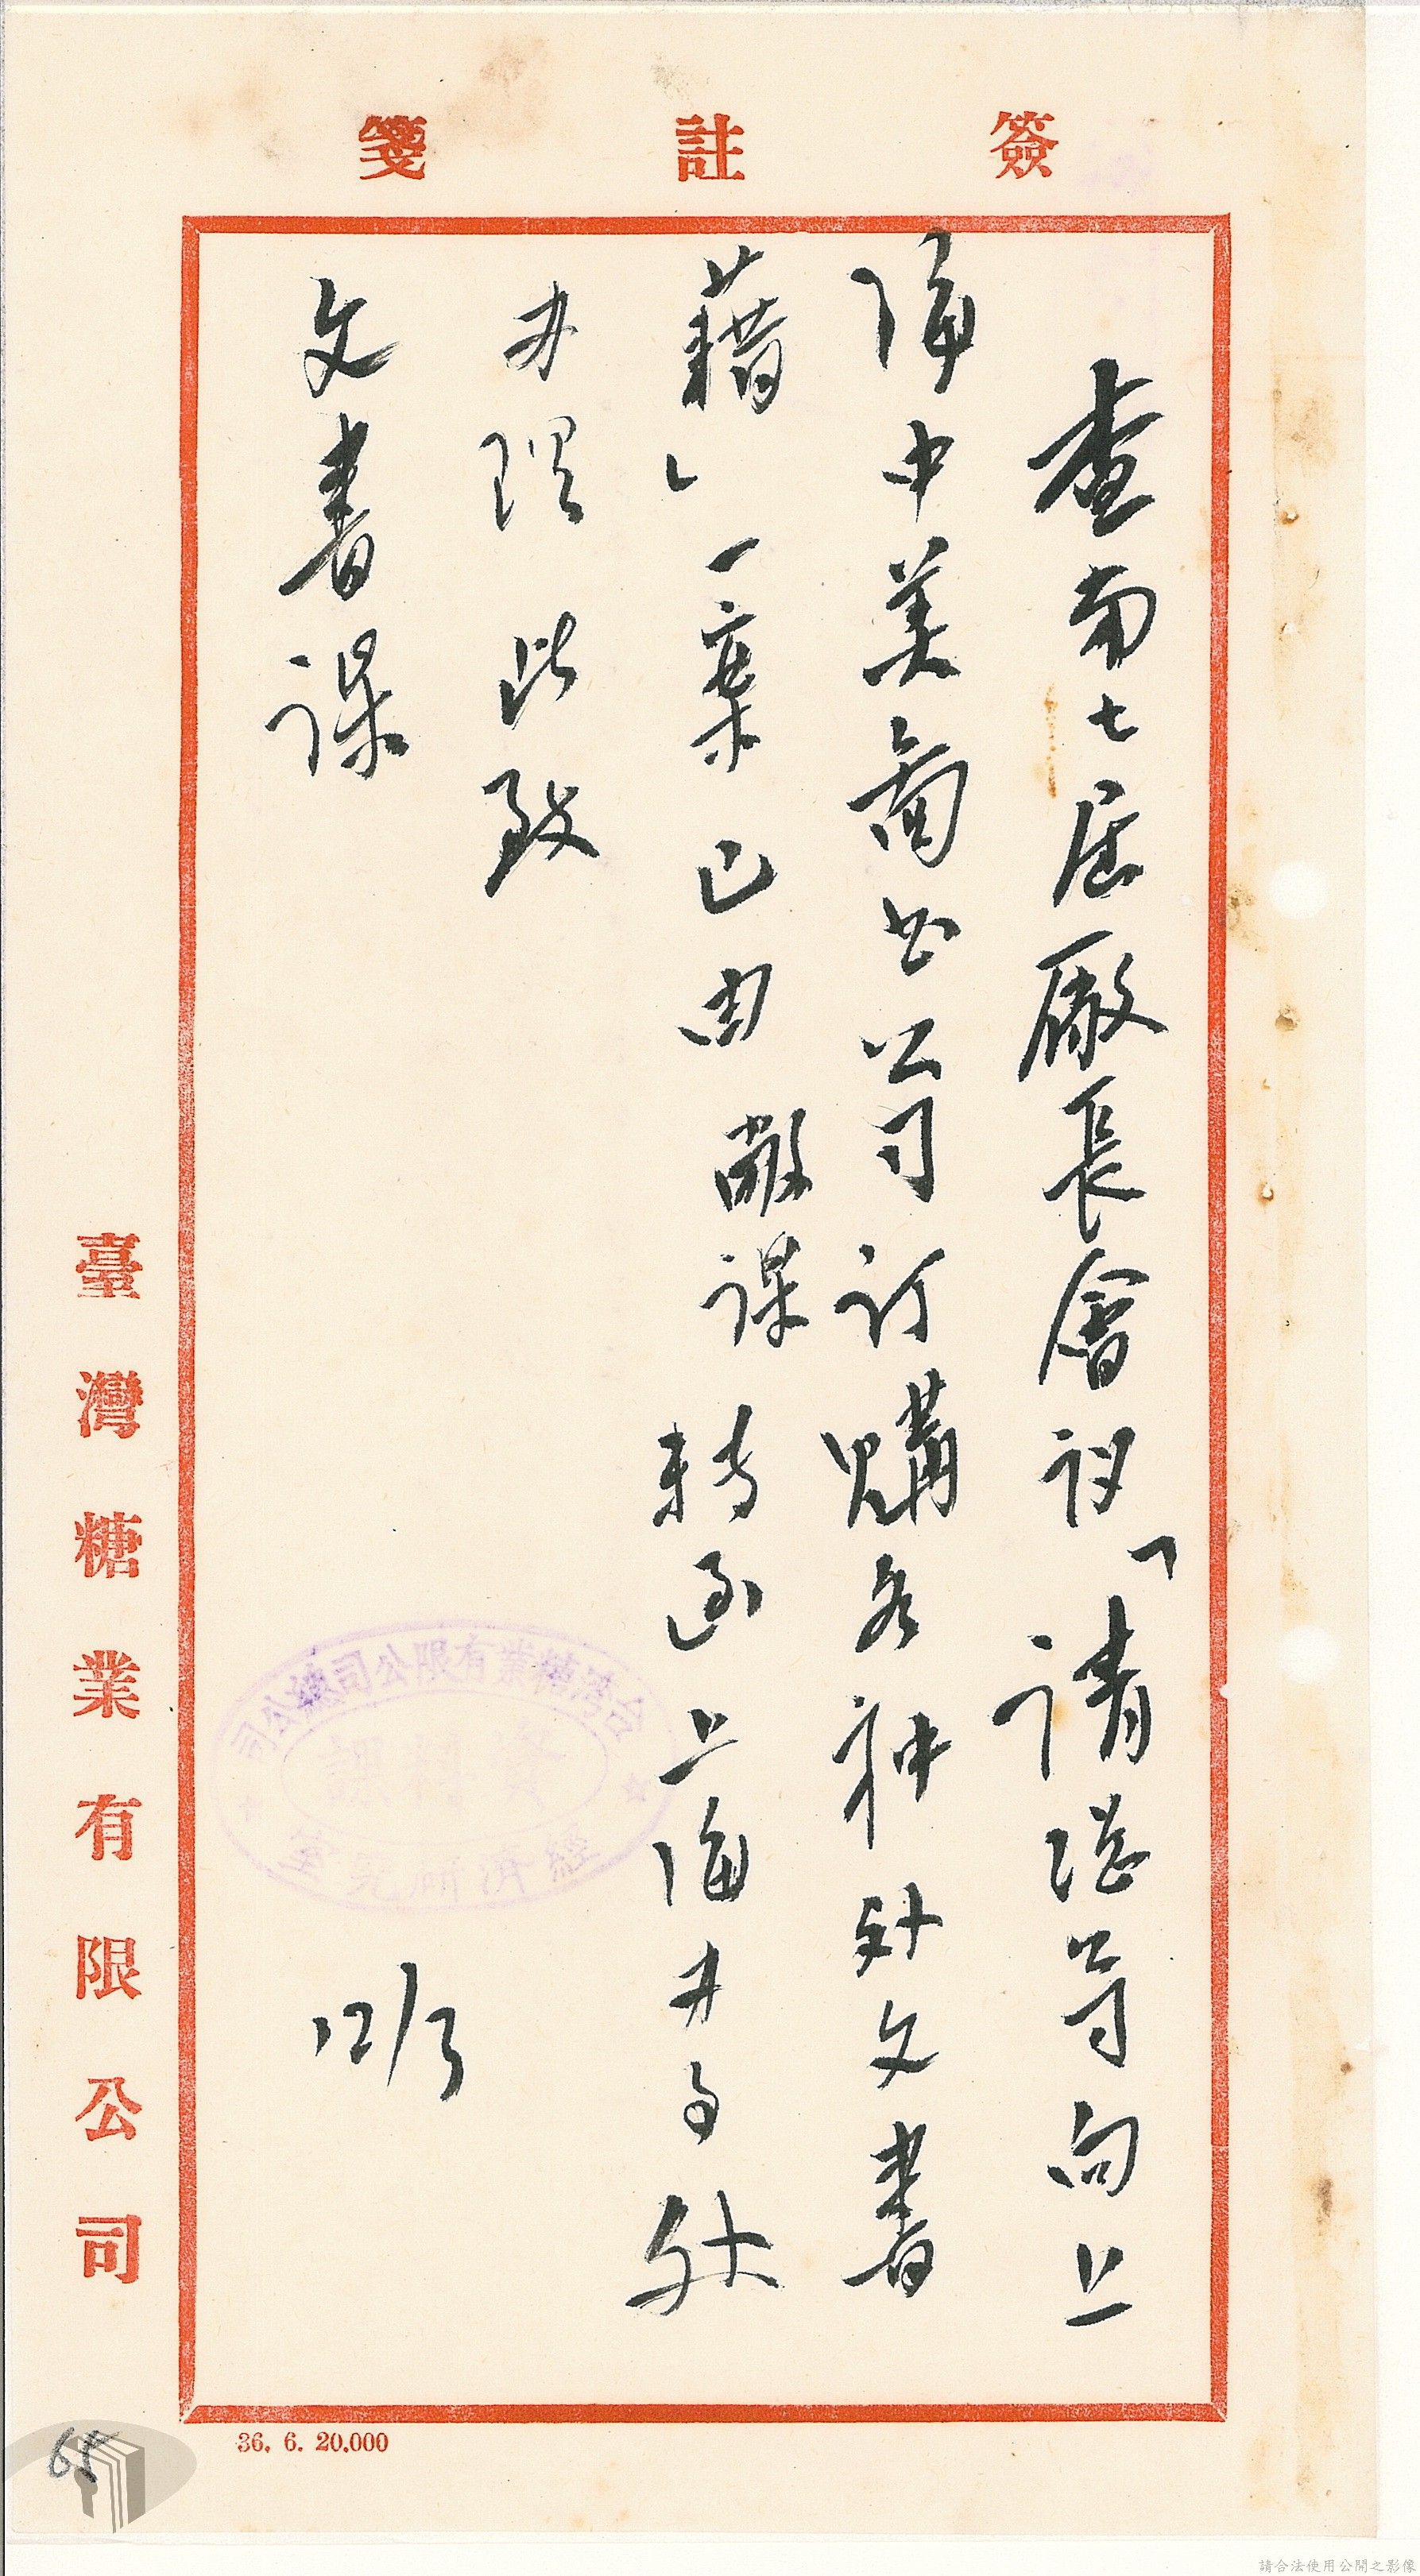 簽註箋
查第七屆廠長會議「請總公司向上
海中美圖书公司訂購各种外文書
藉」一案已由敝課轉函上海办事处
办理此致
文書課
12/3
台灣糖業有限公司總公司
經濟研究室
臺灣糖業有限公司
36. 6. 20,000
65
請合法使用公開之影像